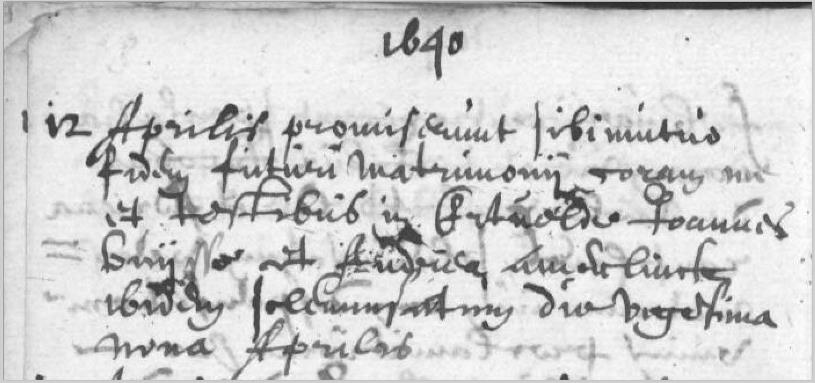 1640
12 Aprilis promiserunt sibi mutuo
fidem futuri matrimonij coram me
et testibus in Ertvelde Joannes
et Andrea
ibidem solemnisatum die vigesima
nona Aprilis